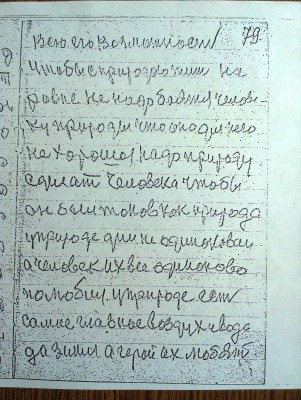 всю его возможность 79
чтобы с природой жить на
ровне не надо боятся челове-
ку природы что она для него
не хорошо надо природу
сделат человека чтобы
он были таков как природа
у природе дни не одинаковы
а человек их все одинаково
полюбил у природе ест
самое главное воздух и вода
да земля а герой их любят